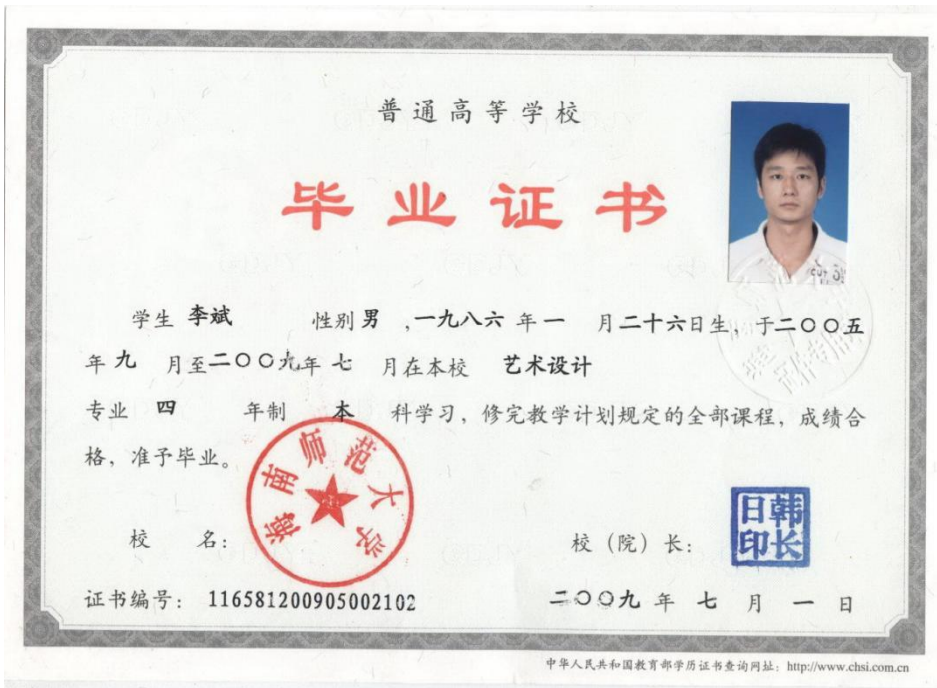 普通高等学校
毕业证书
学生 李斌 性别 男 ,一九八六 年 一 月 二十六日生, 于二〇〇五
年 九 月至二〇〇九年 七 月在本校 艺术设计
专业 四 年制 本 科学习，修完教学计划规定的全部课程，成绩合
格，准予毕业。
海南师范大学
韩长日印
校 名：
校（院）长：
证书编号： 116581200905002102
二〇〇九 年 七 月 一 日
中华人民共和国教育部学历证书查询网址：http://www.chsi.com.cn